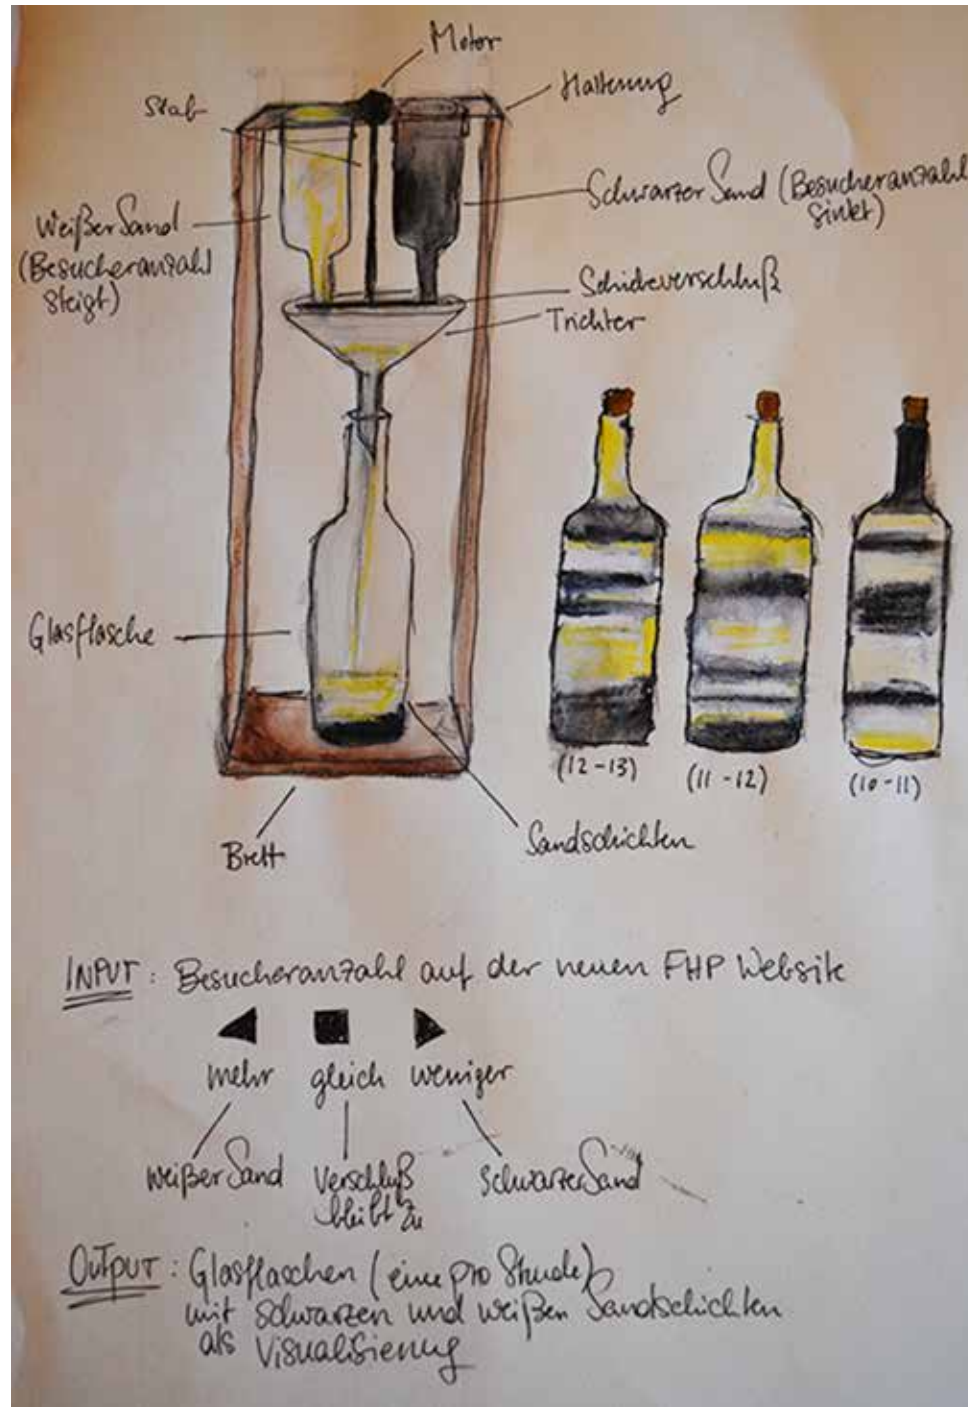 Motor
Stab
Halterung
Schwarzer Sand (Besucheranzahl
sinkt)
Weißer Sand
(Besucheranzahl
steigt)
Schiebeverschluß
Trichter
Glasflasche
(12-13)
(11-12)
(10-11)
Brett
Sandschichten
INPUT: Besucheranzahl auf der neuen FHP Website
mehr gleich weniger
weißer Sand Verschluß schwarzer Sand
bleibt zu
OUTPUT: Glasflaschen (eine pro Stunde)
mit schwarzen und weißen Sandschichten
als Visualisierung